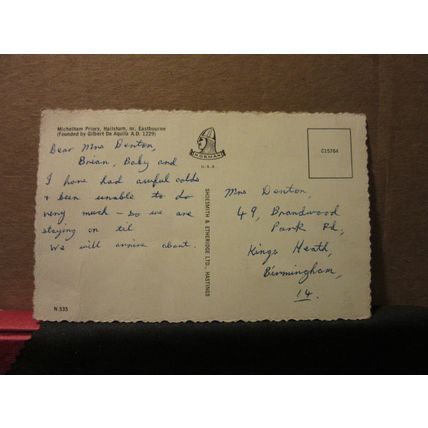 Michelham Priory, Hailsham, nr. Eastbourne
(Founded by Gilbert De Aquila A.D. 1229)
Dear Mrs Denton,
Brian, Baby and
I have had awful colds
& been unable to do
very much - so we are
staying on til
We will arrive about.
N.535
NORMAN
U.S.A.
SHOESMITH & ETHERIDGE LTD. HASTINGS
C15764
Mrs Denton,
49, Brandwood
Park Rd,
Kings Heath,
Birmingham,
14.